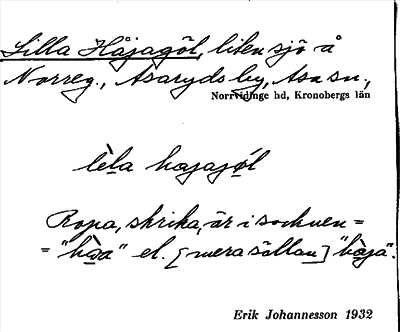 Lilla Håjagöl, liten sjö å
Norreg., Asaryds by, Asa sn.,
Norrvidinge hd, Kronobergs län
lèla hajagøl
Ropa, skrika, är i socknen =
= "hàja" el. [mera sällan] "håja".
Erik Johannesson 1932